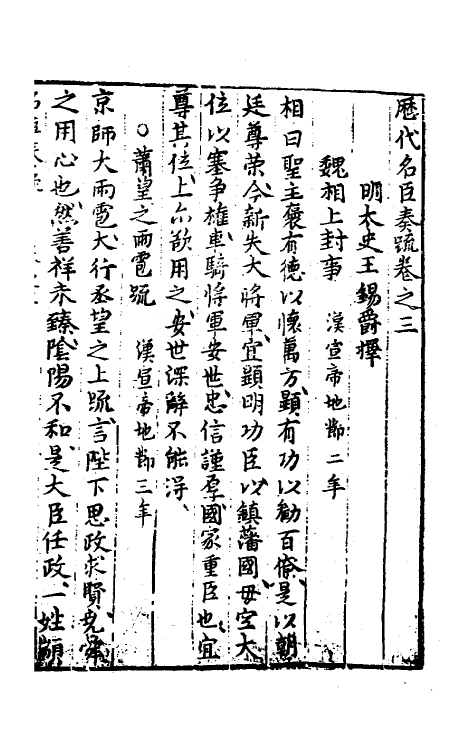 歷代名臣奏疏卷之三
明太史王錫爵擇
魏相上封事 漢宣帝地節二年
相曰聖主褒有德以懷萬方顯有功以勸百僚是以朝
廷尊荣今新失大將軍宜顯明功臣以鎮藩國毋空大
位以塞争權車騎將軍安世忠信謹厚國家重臣也宜
尊其位上亦欲用之安世深辭不能淂
○蕭望之雨雹疏 漢宣帝地節三年
京師大雨雹大行丞望之上疏言陛下思政求賢堯舜
之用心也然善祥未臻陰陽不和是大臣任政一姓顓